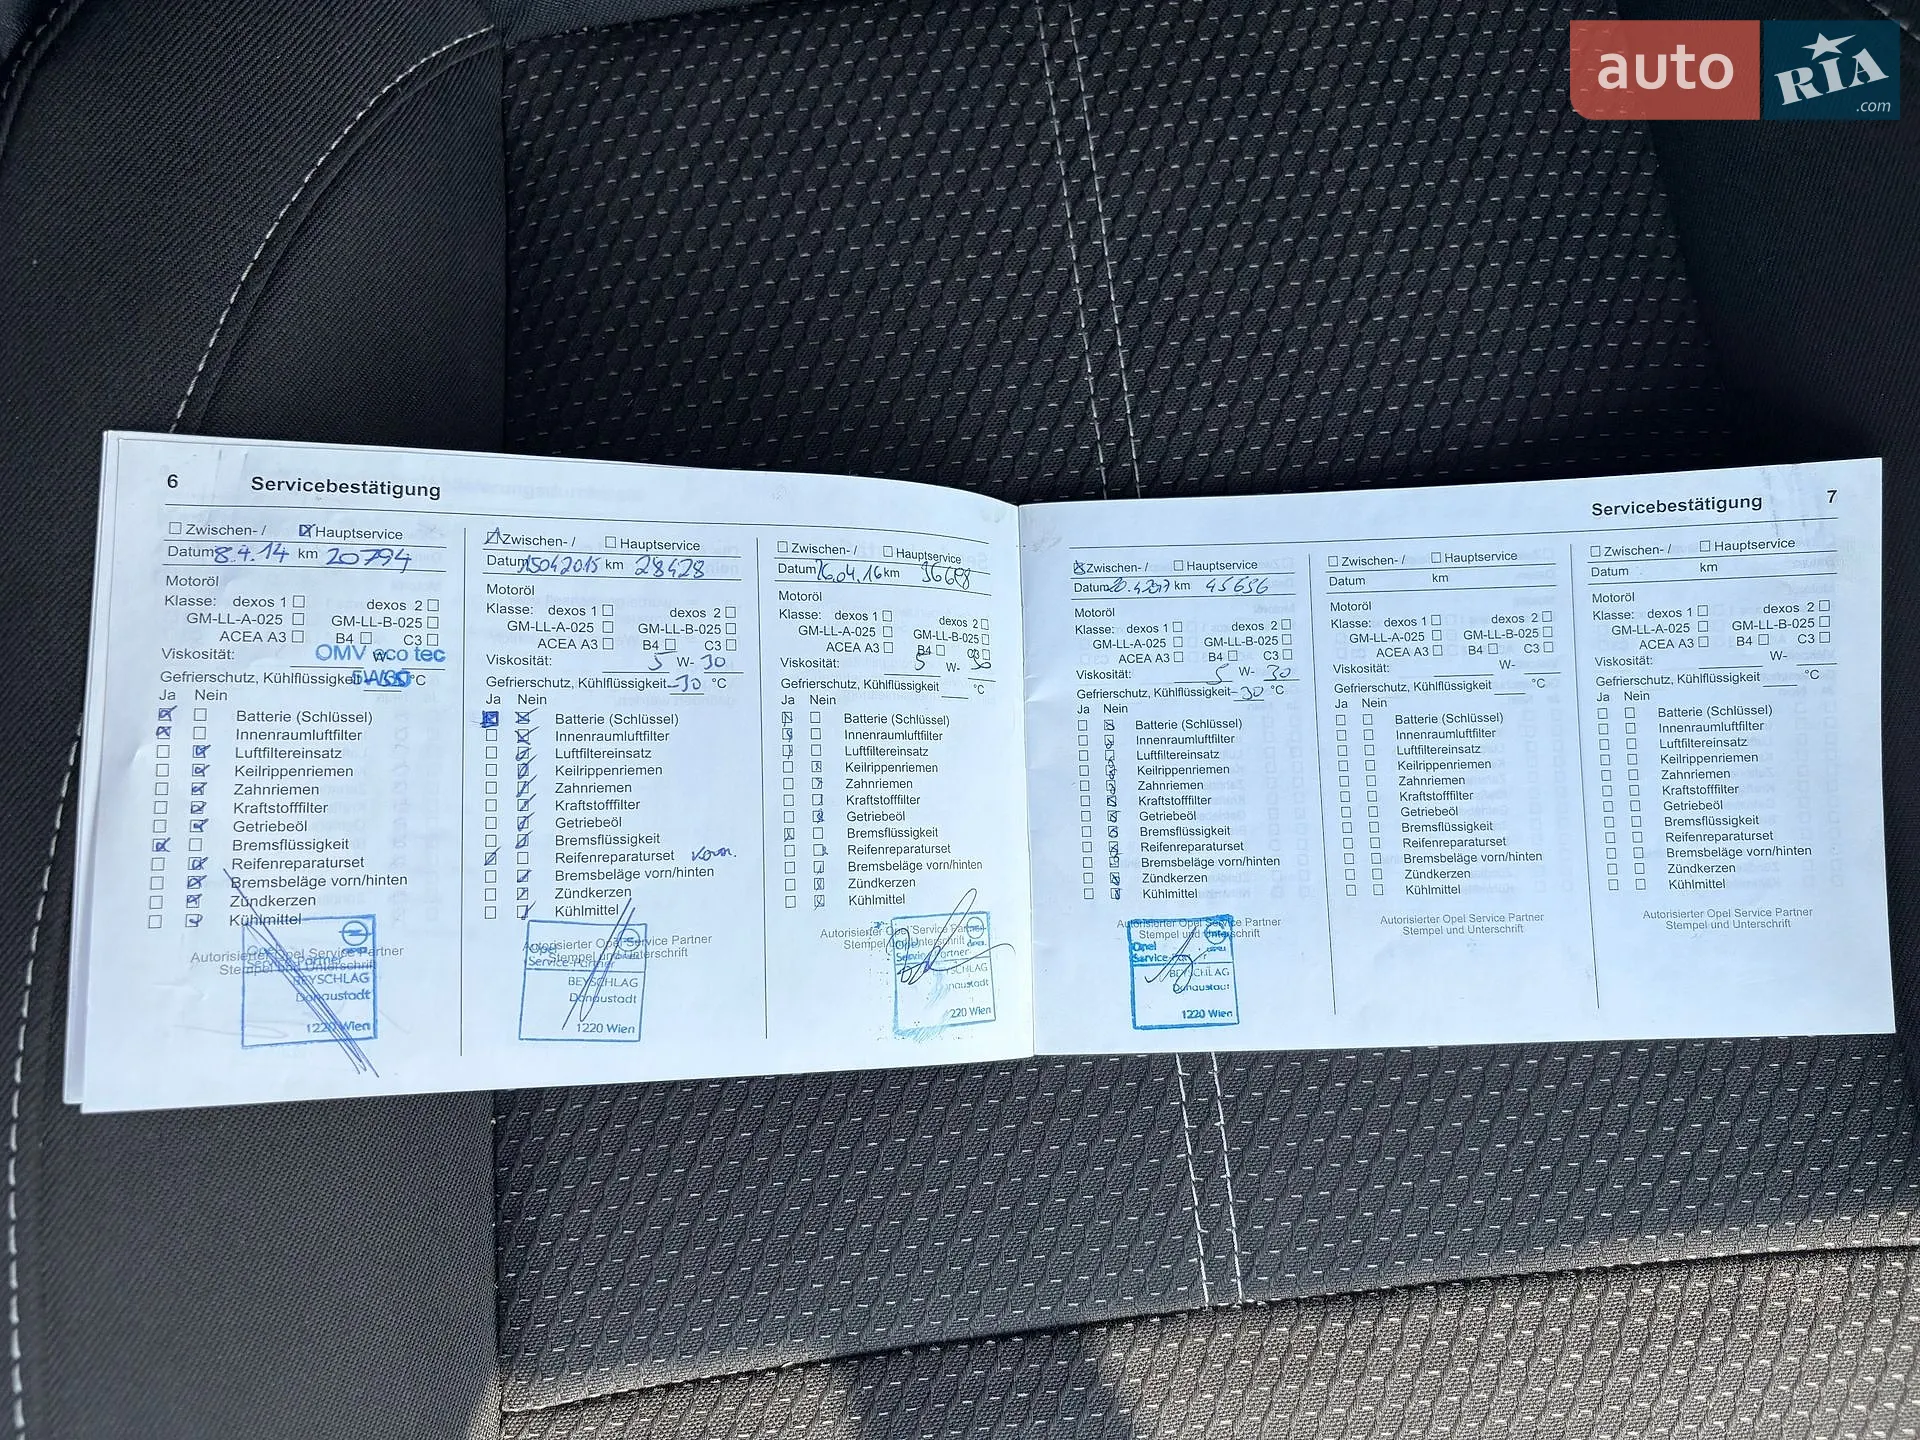 auto RIA .com
6 Servicebestätigung
Zwischen- / Hauptservice
Datum 8.4.14 km 20794
Motoröl
Klasse: dexos 1 dexos 2
GM-LL-A-025 GM-LL-B-025
ACEA A3 B4 C3
Viskosität: W-
OMV eco tec
Gefrierschutz, Kühlflüssigkeit °C
Ja Nein
Batterie (Schlüssel)
Innenraumluftfilter
Luftfiltereinsatz
Keilrippenriemen
Zahnriemen
Kraftstofffilter
Getriebeöl
Bremsflüssigkeit
Reifenreparaturset
Bremsbeläge vorn/hinten
Zündkerzen
Kühlmittel
Autorisierter Opel Service Partner
Stempel und Unterschrift
Opel
Service Partner
BEYSCHLAG
Donaustadt
1220 Wien
Zwischen- / Hauptservice
Datum 15042015 km 28428
Motoröl
Klasse: dexos 1 dexos 2
GM-LL-A-025 GM-LL-B-025
ACEA A3 B4 C3
Viskosität: 5 W- 30
Gefrierschutz, Kühlflüssigkeit -30 °C
Ja Nein
Batterie (Schlüssel)
Innenraumluftfilter
Luftfiltereinsatz
Keilrippenriemen
Zahnriemen
Kraftstofffilter
Getriebeöl
Bremsflüssigkeit
Reifenreparaturset
Bremsbeläge vorn/hinten
Zündkerzen
Kühlmittel
Autorisierter Opel Service Partner
Stempel und Unterschrift
Service-Partner
BEYSCHLAG
Donaustadt
1220 Wien
Zwischen- / Hauptservice
Datum 26.04.16 km 36608
Motoröl
Klasse: dexos 1 dexos 2
GM-LL-A-025 GM-LL-B-025
ACEA A3 B4 C3
Viskosität: 5 W- 30
Gefrierschutz, Kühlflüssigkeit °C
Ja Nein
Batterie (Schlüssel)
Innenraumluftfilter
Luftfiltereinsatz
Keilrippenriemen
Zahnriemen
Kraftstofffilter
Getriebeöl
Bremsflüssigkeit
Reifenreparaturset
Bremsbeläge vorn/hinten
Zündkerzen
Kühlmittel
Autorisierter Opel Service Partner
Stempel und Unterschrift
Opel
Service Partner
Servicebestätigung 7
Zwischen- / Hauptservice
Datum 20.4.2017 km 45656
Motoröl
Klasse: dexos 1 dexos 2
GM-LL-A-025 GM-LL-B-025
ACEA A3 B4 C3
Viskosität: 5 W- 30
Gefrierschutz, Kühlflüssigkeit -30 °C
Ja Nein
Batterie (Schlüssel)
Innenraumluftfilter
Luftfiltereinsatz
Keilrippenriemen
Zahnriemen
Kraftstofffilter
Getriebeöl
Bremsflüssigkeit
Reifenreparaturset
Bremsbeläge vorn/hinten
Zündkerzen
Kühlmittel
Autorisierter Opel Service Partner
Stempel und Unterschrift
Opel
BEYSCHLAG
Donaustadt
1220 Wien
Zwischen- / Hauptservice
Datum km
Motoröl
Klasse: dexos 1 dexos 2
GM-LL-A-025 GM-LL-B-025
ACEA A3 B4 C3
Viskosität: W-
Gefrierschutz, Kühlflüssigkeit °C
Ja Nein
Batterie (Schlüssel)
Innenraumluftfilter
Luftfiltereinsatz
Keilrippenriemen
Zahnriemen
Kraftstofffilter
Getriebeöl
Bremsflüssigkeit
Reifenreparaturset
Bremsbeläge vorn/hinten
Zündkerzen
Kühlmittel
Autorisierter Opel Service Partner
Stempel und Unterschrift
Zwischen- / Hauptservice
Datum km
Motoröl
Klasse: dexos 1 dexos 2
GM-LL-A-025 GM-LL-B-025
ACEA A3 B4 C3
Viskosität: W-
Gefrierschutz, Kühlflüssigkeit °C
Ja Nein
Batterie (Schlüssel)
Innenraumluftfilter
Luftfiltereinsatz
Keilrippenriemen
Zahnriemen
Kraftstofffilter
Getriebeöl
Bremsflüssigkeit
Reifenreparaturset
Bremsbeläge vorn/hinten
Zündkerzen
Kühlmittel
Autorisierter Opel Service Partner
Stempel und Unterschrift